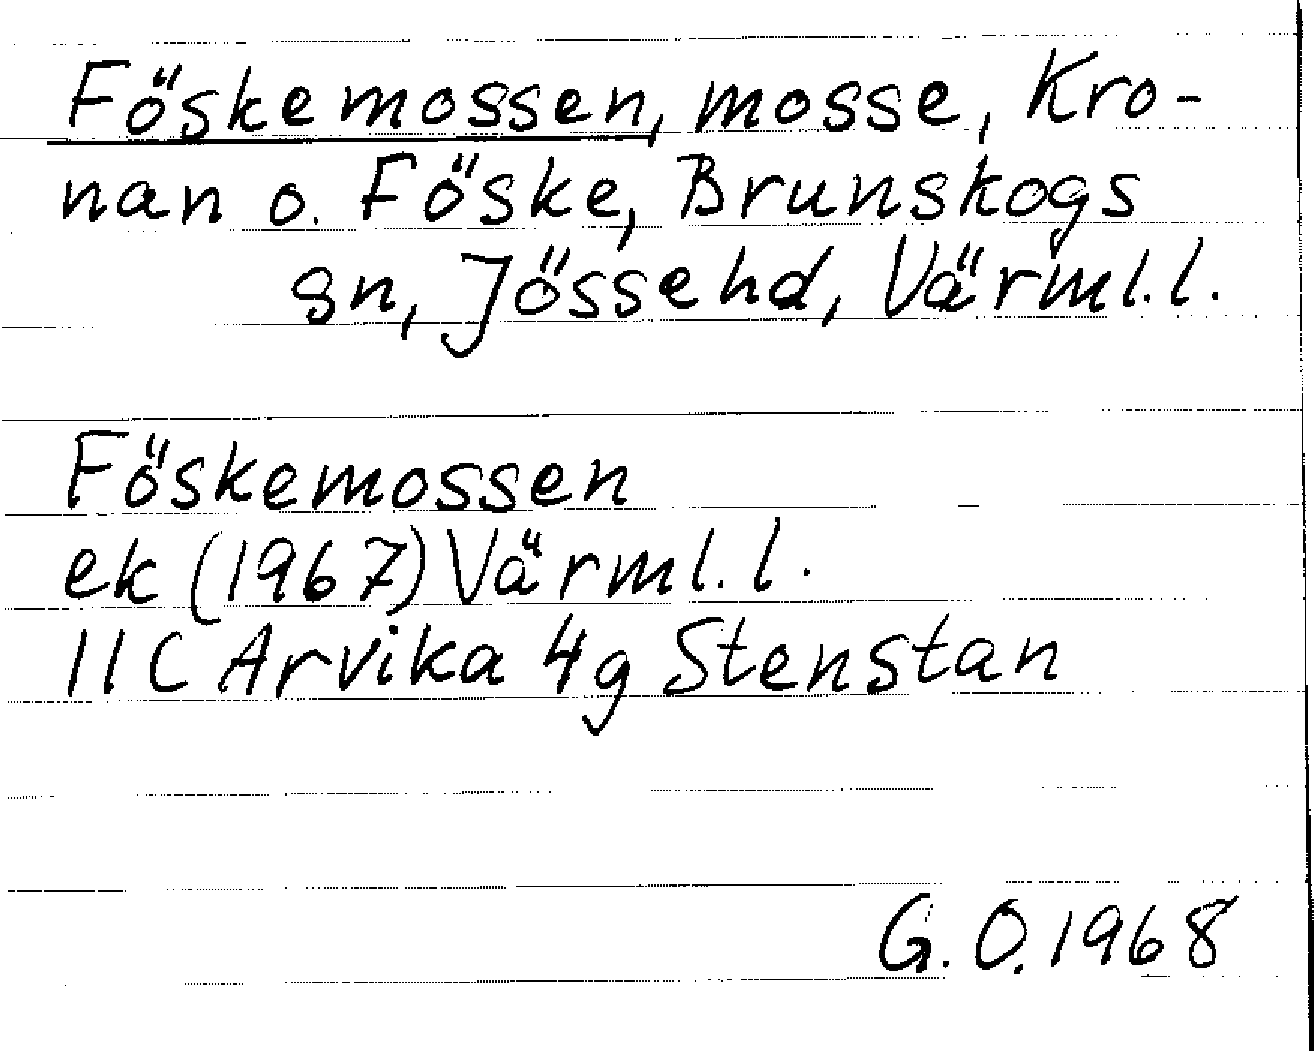 Föskemossen, mosse, Kro-
nan o. Föske, Brunskogs
sn, Jössehd, Värml.l.
Föskemossen
ek (1967) Värml.l.
11C Arvika 4g Stenstan
G.O.1968